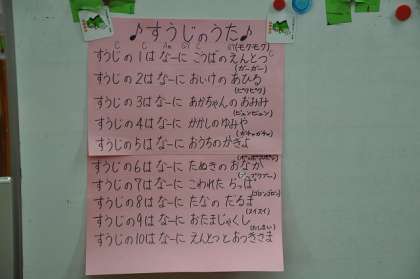 ♪すうじのうた♪
C C Am G7 C G7(モクモク)
すうじの1は なーに こうばのえんとつ
(ガーガー)
すうじの2は なーに おいけのあひる
(ピクピク)
すうじの3は なーに あかちゃんのおみみ
(ビュンビュン)
すうじの4は なーに かかしのゆみや
(ガチャガチャ)
すうじの5は なーに おうちのかぎよ
すうじの6は なーに たぬきのおなか
すうじの7は なーに こわれたらっぱ
(ゴロンゴロン)
すうじの8は なーに たなのだるま
(スイスイ)
すうじの9は なーに おたまじゃくし
(おしまい)
すうじの10は なーに えんとつとおつきさま